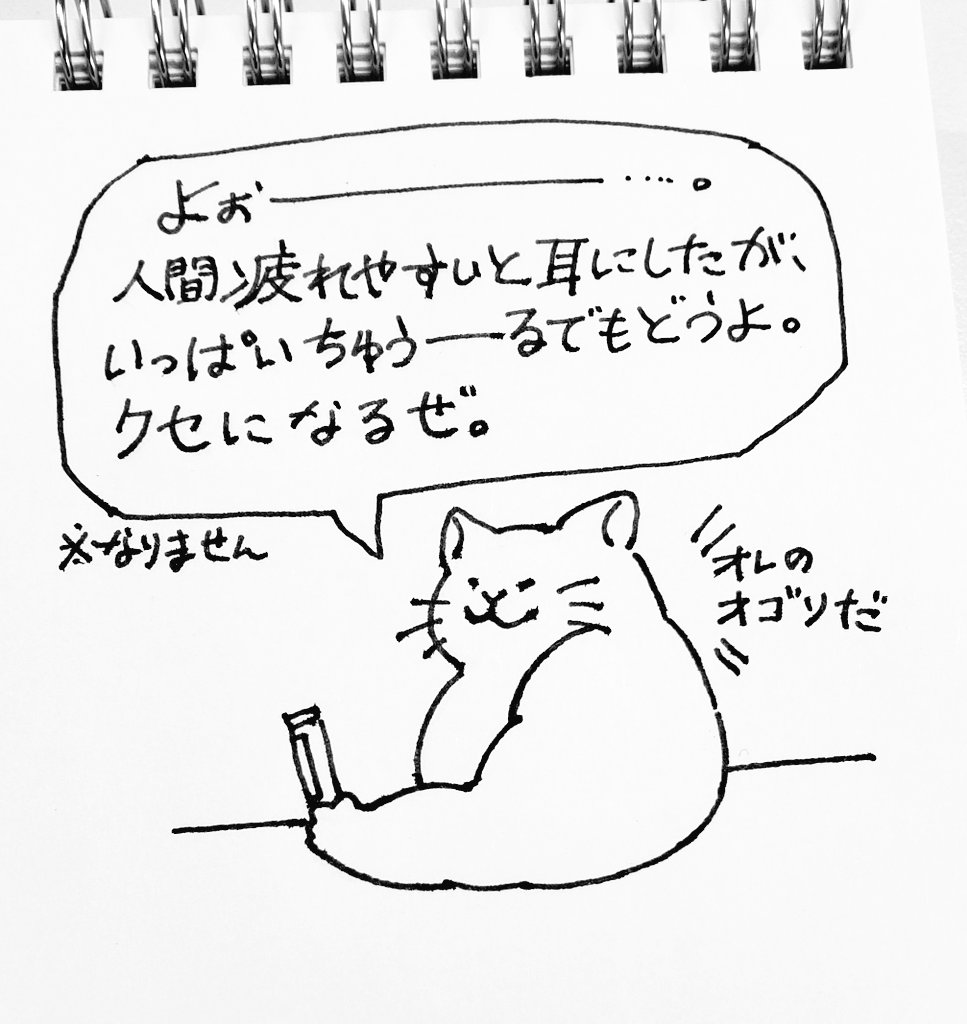 よぉ――――――……。
人間疲れやすいと耳にしたが、
いっぱいちゅう――るでもどうよ。
クセになるぜ。
※なりません
オレの
オゴリだ